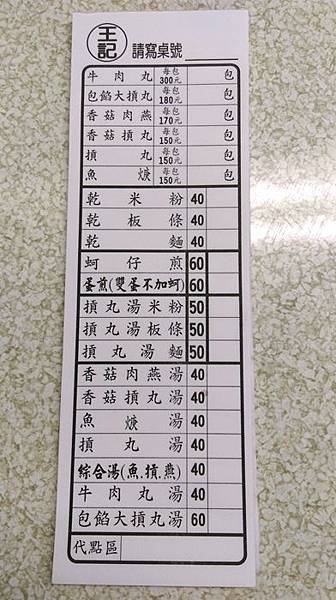 王記 請寫桌號
牛肉丸 每包300元 包
包餡大摃丸 每包180元 包
香菇肉燕 每包170元 包
香菇摃丸 每包150元 包
摃丸 每包150元 包
魚焿 每包150元 包
乾米粉 40
乾板條 40
乾麵 40
蚵仔煎 60
蛋煎(雙蛋不加蚵) 60
摃丸湯米粉 50
摃丸湯板條 50
摃丸湯麵 50
香菇肉燕湯 40
香菇摃丸湯 40
魚焿湯 40
摃丸湯 40
綜合湯(魚.摃.燕) 40
牛肉丸湯 40
包餡大摃丸湯 60
代點區